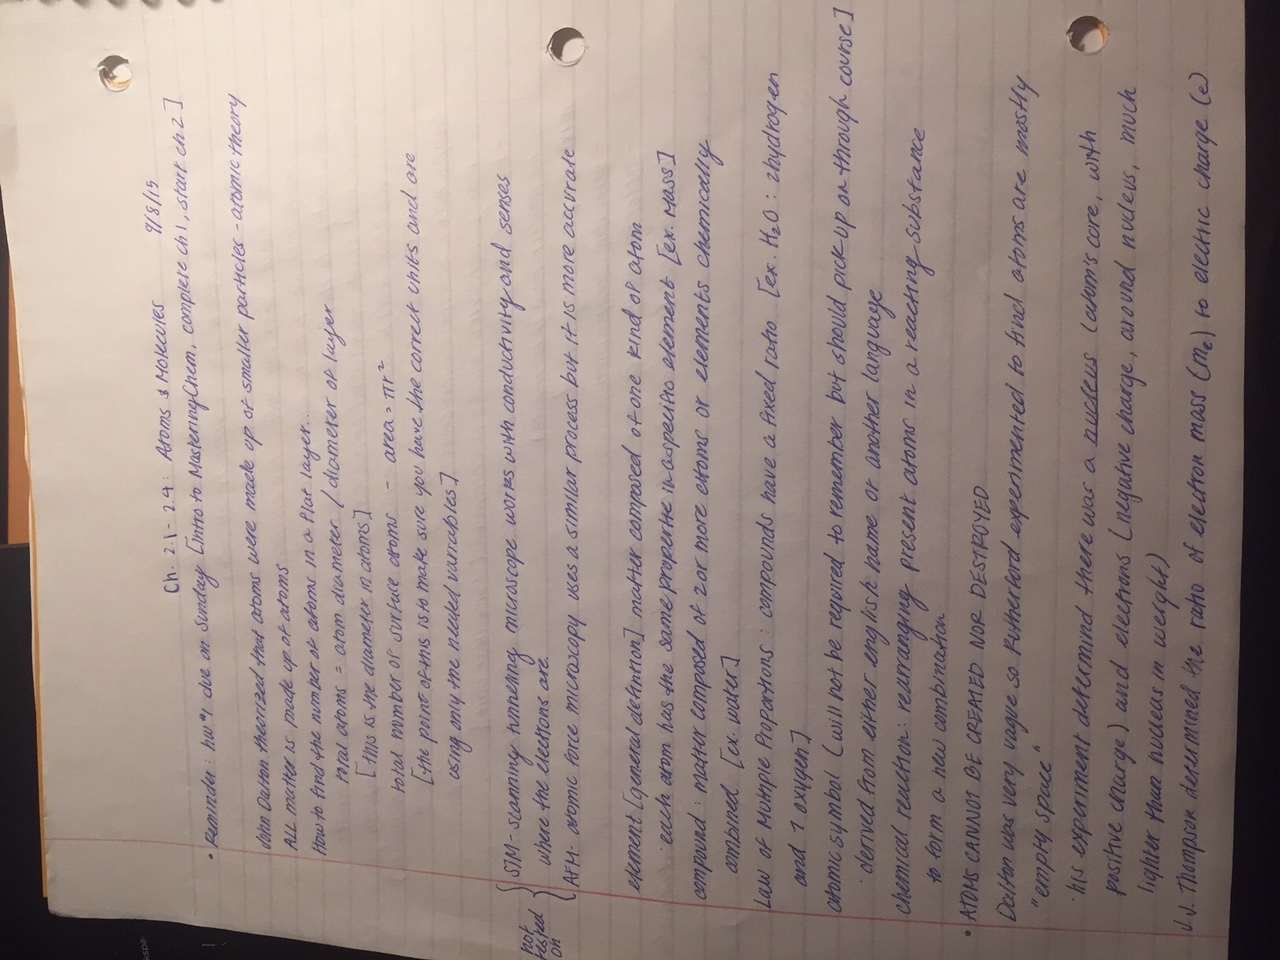 Ch. 2.1 - 2.4: Atoms & Molecules 9/8/15
• reminder: hw #1 due on Sunday [Intro to MasteringChem, complete ch 1, start ch 2]
John Dalton theorized that atoms were made up of smaller particles - atomic theory
All matter is made up of atoms
How to find the number of atoms in a flat layer...
total atoms = atom diameter / diameter of layer
[this is the diameter in atoms]
total number of surface atoms - area = πr²
[the point of this is to make sure you have the correct units and are
using any the needed variables]
not tested on { STM - scanning tunneling microscope works with conductivity and senses
where the electrons are
AFM - atomic force microscopy uses a similar process but it is more accurate
element [general definition] matter composed of one kind of atom
each atom has the same properties in a specific element [ex. Mass]
compound: matter composed of 2 or more atoms or elements chemically
combined [ex. water]
Law of Multiple Proportions: compounds have a fixed ratio [ex. H₂O: 2 hydrogen
and 1 oxygen]
atomic symbol (will not be required to remember but should pick up on through course]
derived from either english name or another language
chemical reaction: rearranging present atoms in a reacting substance
to form a new combination
• ATOMS CANNOT BE CREATED NOR DESTROYED
Dalton was very vague so Rutherford experimented to find atoms are mostly
"empty space"
his experiment determind there was a nucleus (atom's core, with
positive charge) and electrons (negative charge, around nucleus, much
lighter than nucleus in weight)
J.J. Thompson determined the ratio of electron mass (mₑ) to electric charge (e)